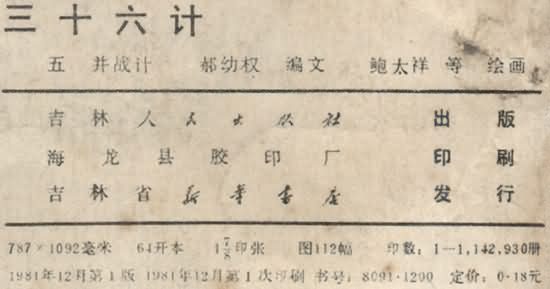 三十六计
五 并战计 郝幼权 编文 鲍太祥 等 绘画
吉林人民出版社 出版
海龙县胶印厂 印刷
吉林省新华书店 发行
787×1092毫米 64开本 1 7/8印张 图112幅 印数：1—1,142,930册
1981年12月第1版 1981年12月第1次印刷 书号：8091·1200 定价：0·18元